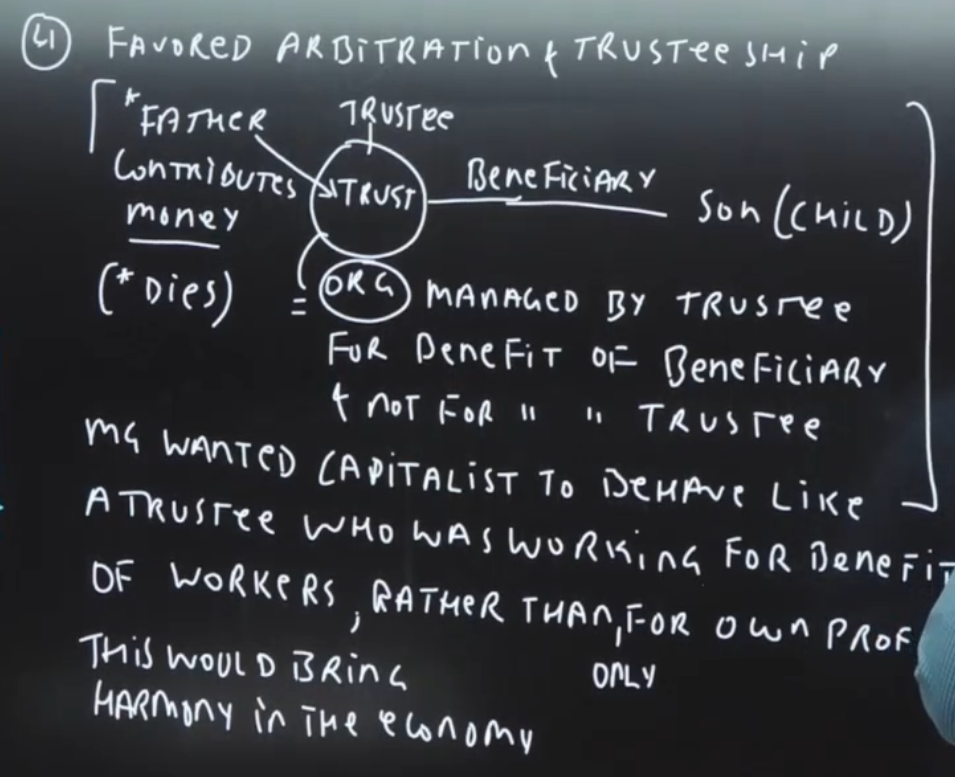 41 FAVORED ARBITRATION & TRUSTEESHIP
*FATHER
CONTRIBUTES
MONEY
(*DIES)
TRUSTEE
TRUST
BENEFICIARY
SON (CHILD)
= ORG MANAGED BY TRUSTEE
FOR BENEFIT OF BENEFICIARY
& NOT FOR " " TRUSTEE
MG WANTED CAPITALIST TO BEHAVE LIKE
A TRUSTEE WHO WAS WORKING FOR BENEFIT
OF WORKERS, RATHER THAN, FOR OWN PROF
ONLY
THIS WOULD BRING
HARMONY IN THE ECONOMY